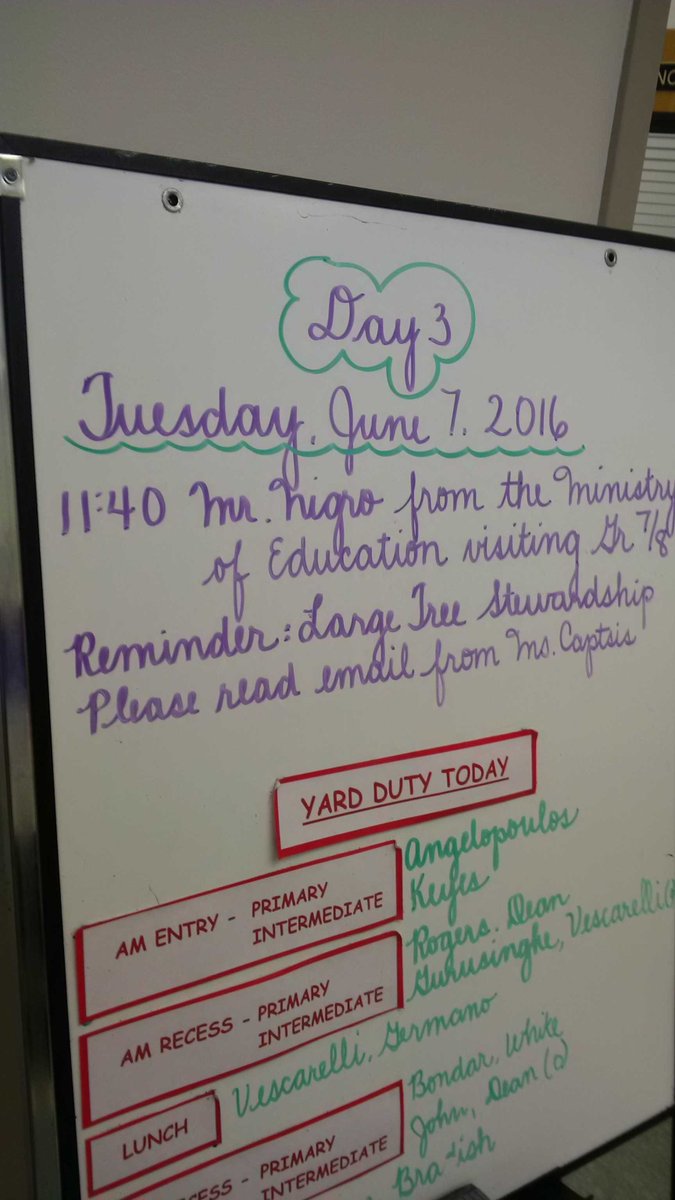 NO
Day 3
Tuesday, June 7, 2016
11:40 Mr. Nigro from the Ministry
of Education visiting Gr 7/8
Reminder: Large Tree Stewardship
Please read email from Ms. Captsis
YARD DUTY TODAY
AM ENTRY - PRIMARY Angelopoulos
INTERMEDIATE
AM RECESS - PRIMARY Rogers, Dean
INTERMEDIATE Gurusinghe, Vescarelli
LUNCH Vescarelli, Germano
PRIMARY Bondar, White
INTERMEDIATE John, Dean (c)